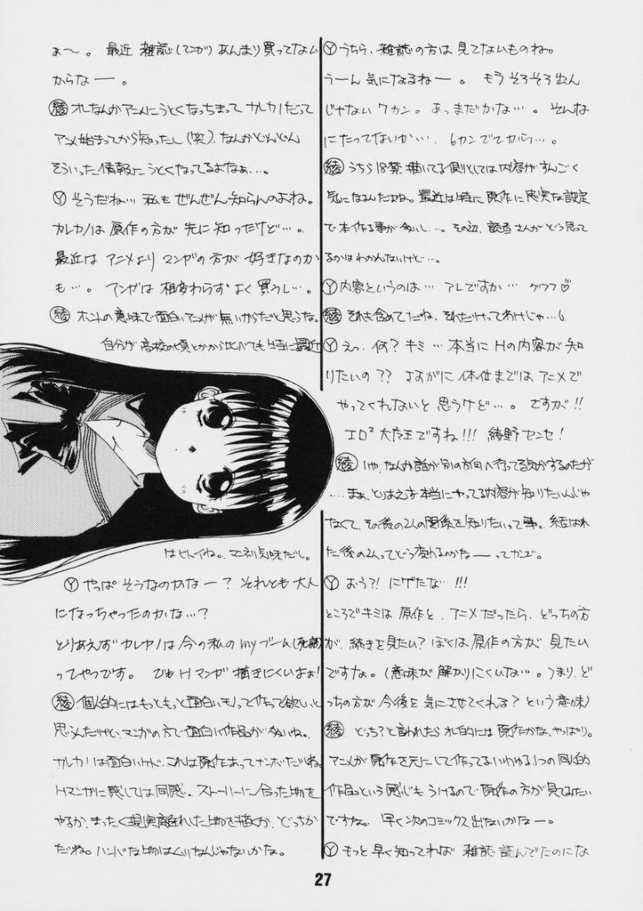 ぁ〜。最近 雑誌(LaLa)あんまり買ってないからな
からなー。
綾 オレなんかアニメにうとくなっちまって カレカノだって
アニメ始まってから知ったし(笑)。なんかどんどん
そういった情報にうとくなってるよなぁ…。
Y そうだね… 私もぜんぜん知らんのよね。
カレカノは 原作の方が 先に知ったけど…。
最近は アニメより マンガの方が 好きなのか
も…。マンガは 相変わらず よく買うし…。
綾 ホントの意味で面白いアニメが無いからだと思うな。
自分が高校の頃とかから比べても特に最近
はヒドイね。マンネリ気味だし。
Y やっぱ そうなのかなー? それとも 大人
になっちゃったのかな…?
とりあえず カレカノは 今の私の myブーム(死語)
ってやつです。 Hマンガ 描きにくいよぉ!
綾 個人的にはもっともっと面白いモノって作って欲しいと
思うんだけど、マンガの方で面白い作品が多いね。
カレカノは面白いけど、これは原作あってナンボだしね。
Hマンガに関しては同感。ストーリーに合った物を
やるか、まったく現実離れした物を描くか、どっちか
だね。ハンパな物はムリなんじゃないかな。
Y うちら、雑誌の方は 見てないものね。
うーん 気になるねー。 もう そろそろ 出ん
じゃない 7カン。 あっ まだかな…。 そんな
にたってないか…、 6カンでてから…。
綾 うちら18禁描いてる側としては内容がすんごく
気になるんだよね。最近は特に、原作に忠実な設定
で本作る事が多いし…。その辺、読者さんがどう思って
るかはわかんないけど…。
Y 内容というのは… アレですか… ウフフ♡
綾 それも含めてだね、それだけってわけじゃ…。
Y えっ、何? キミ… 本当に Hの内容が 知
りたいの?? さすがに 体位までは アニメで
やってくれないと 思うけど…。 ですが!!
エロ² 大魔王ですね!!! 綾野センセ!
綾 いや、なんか話が別の方向へ行ってる気がするのだが
…まぁ、とりあえず本当にヤってる内容が知りたいんじゃ
なくて、その後の2人の関係を知りたいって事。結ばれ
た後の2人ってどう変わるのかなーってカンジ。
Y おう?! にげたな…!!!
ところで キミは 原作と、アニメだったら、どっちの方
が、続きを見たい? ぼくは 原作の方が 見たい
ですな。(意味が 解かりにくいな…。つまり、ど
っちの方が 今後を 気にさせてくれる? という意味)
綾 どっち?と言われたらオレ的には 原作かな、やっぱり。
アニメが 原作を元にして作ってるいわゆる1つの同人的
作品という感じもうけるので原作の方が見てみたい
ですね。早く次のコミックス出ないかなー。
Y もっと 早く 知ってれば 雑誌 読んでたのにな
27